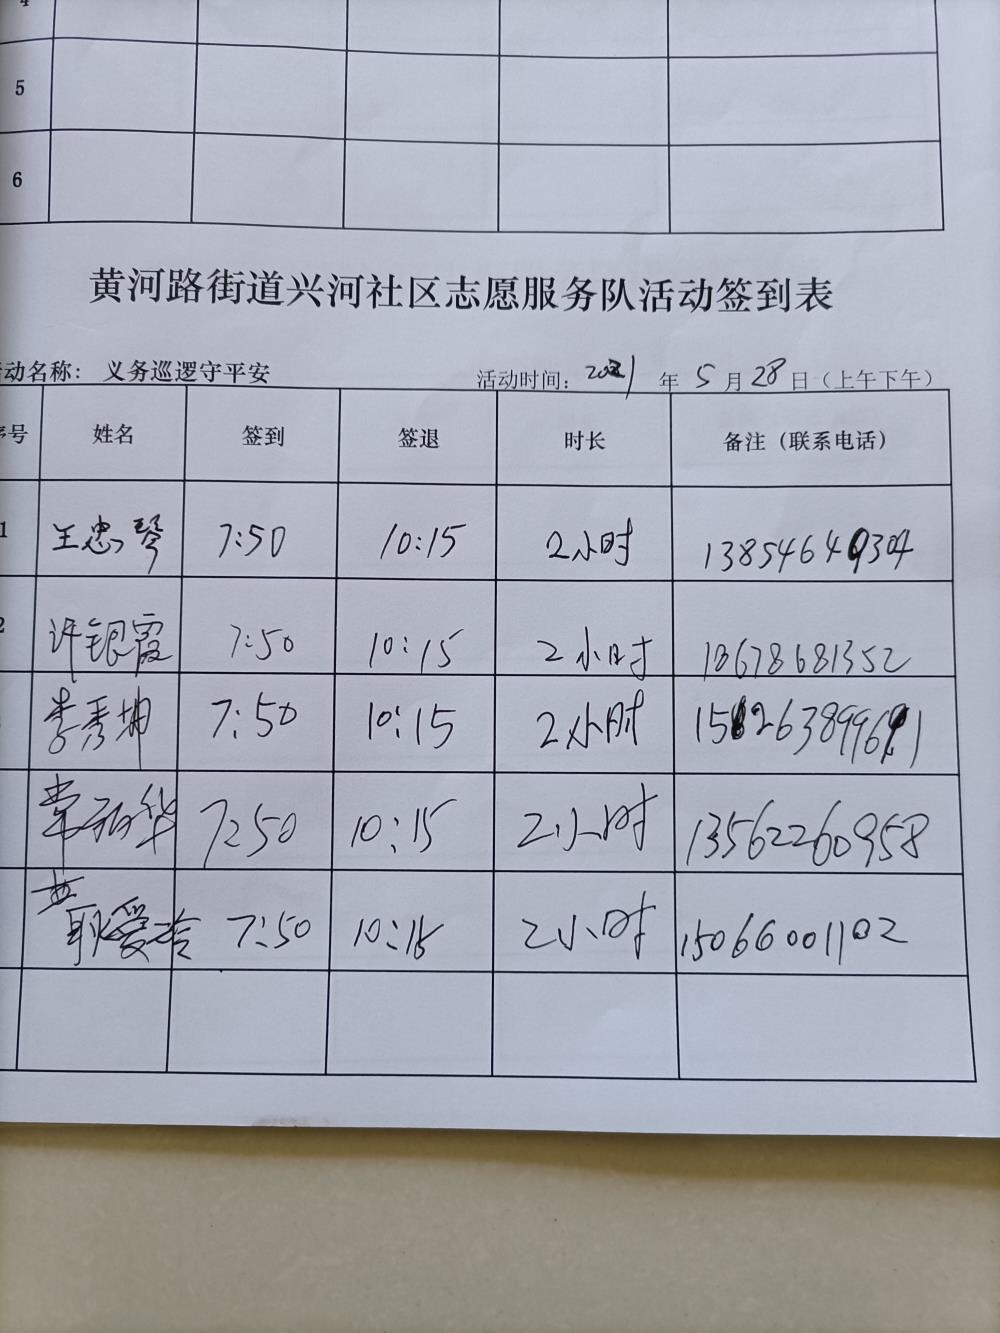 5
6
黄河路街道兴河社区志愿服务队活动签到表
动名称： 义务巡逻守平安 活动时间：2021 年 5 月 28 日（上午下午）
序号 姓名 签到 签退 时长 备注（联系电话）
1 王忠琴 7:50 10:15 2小时
2 许银霞 7:50 10:15 2小时 18678681352
李秀坤 7:50 10:15 2小时
常 华 7:50 10:15 2小时 13562260958
耿爱玲 7:50 10:15 2小时 15066001102